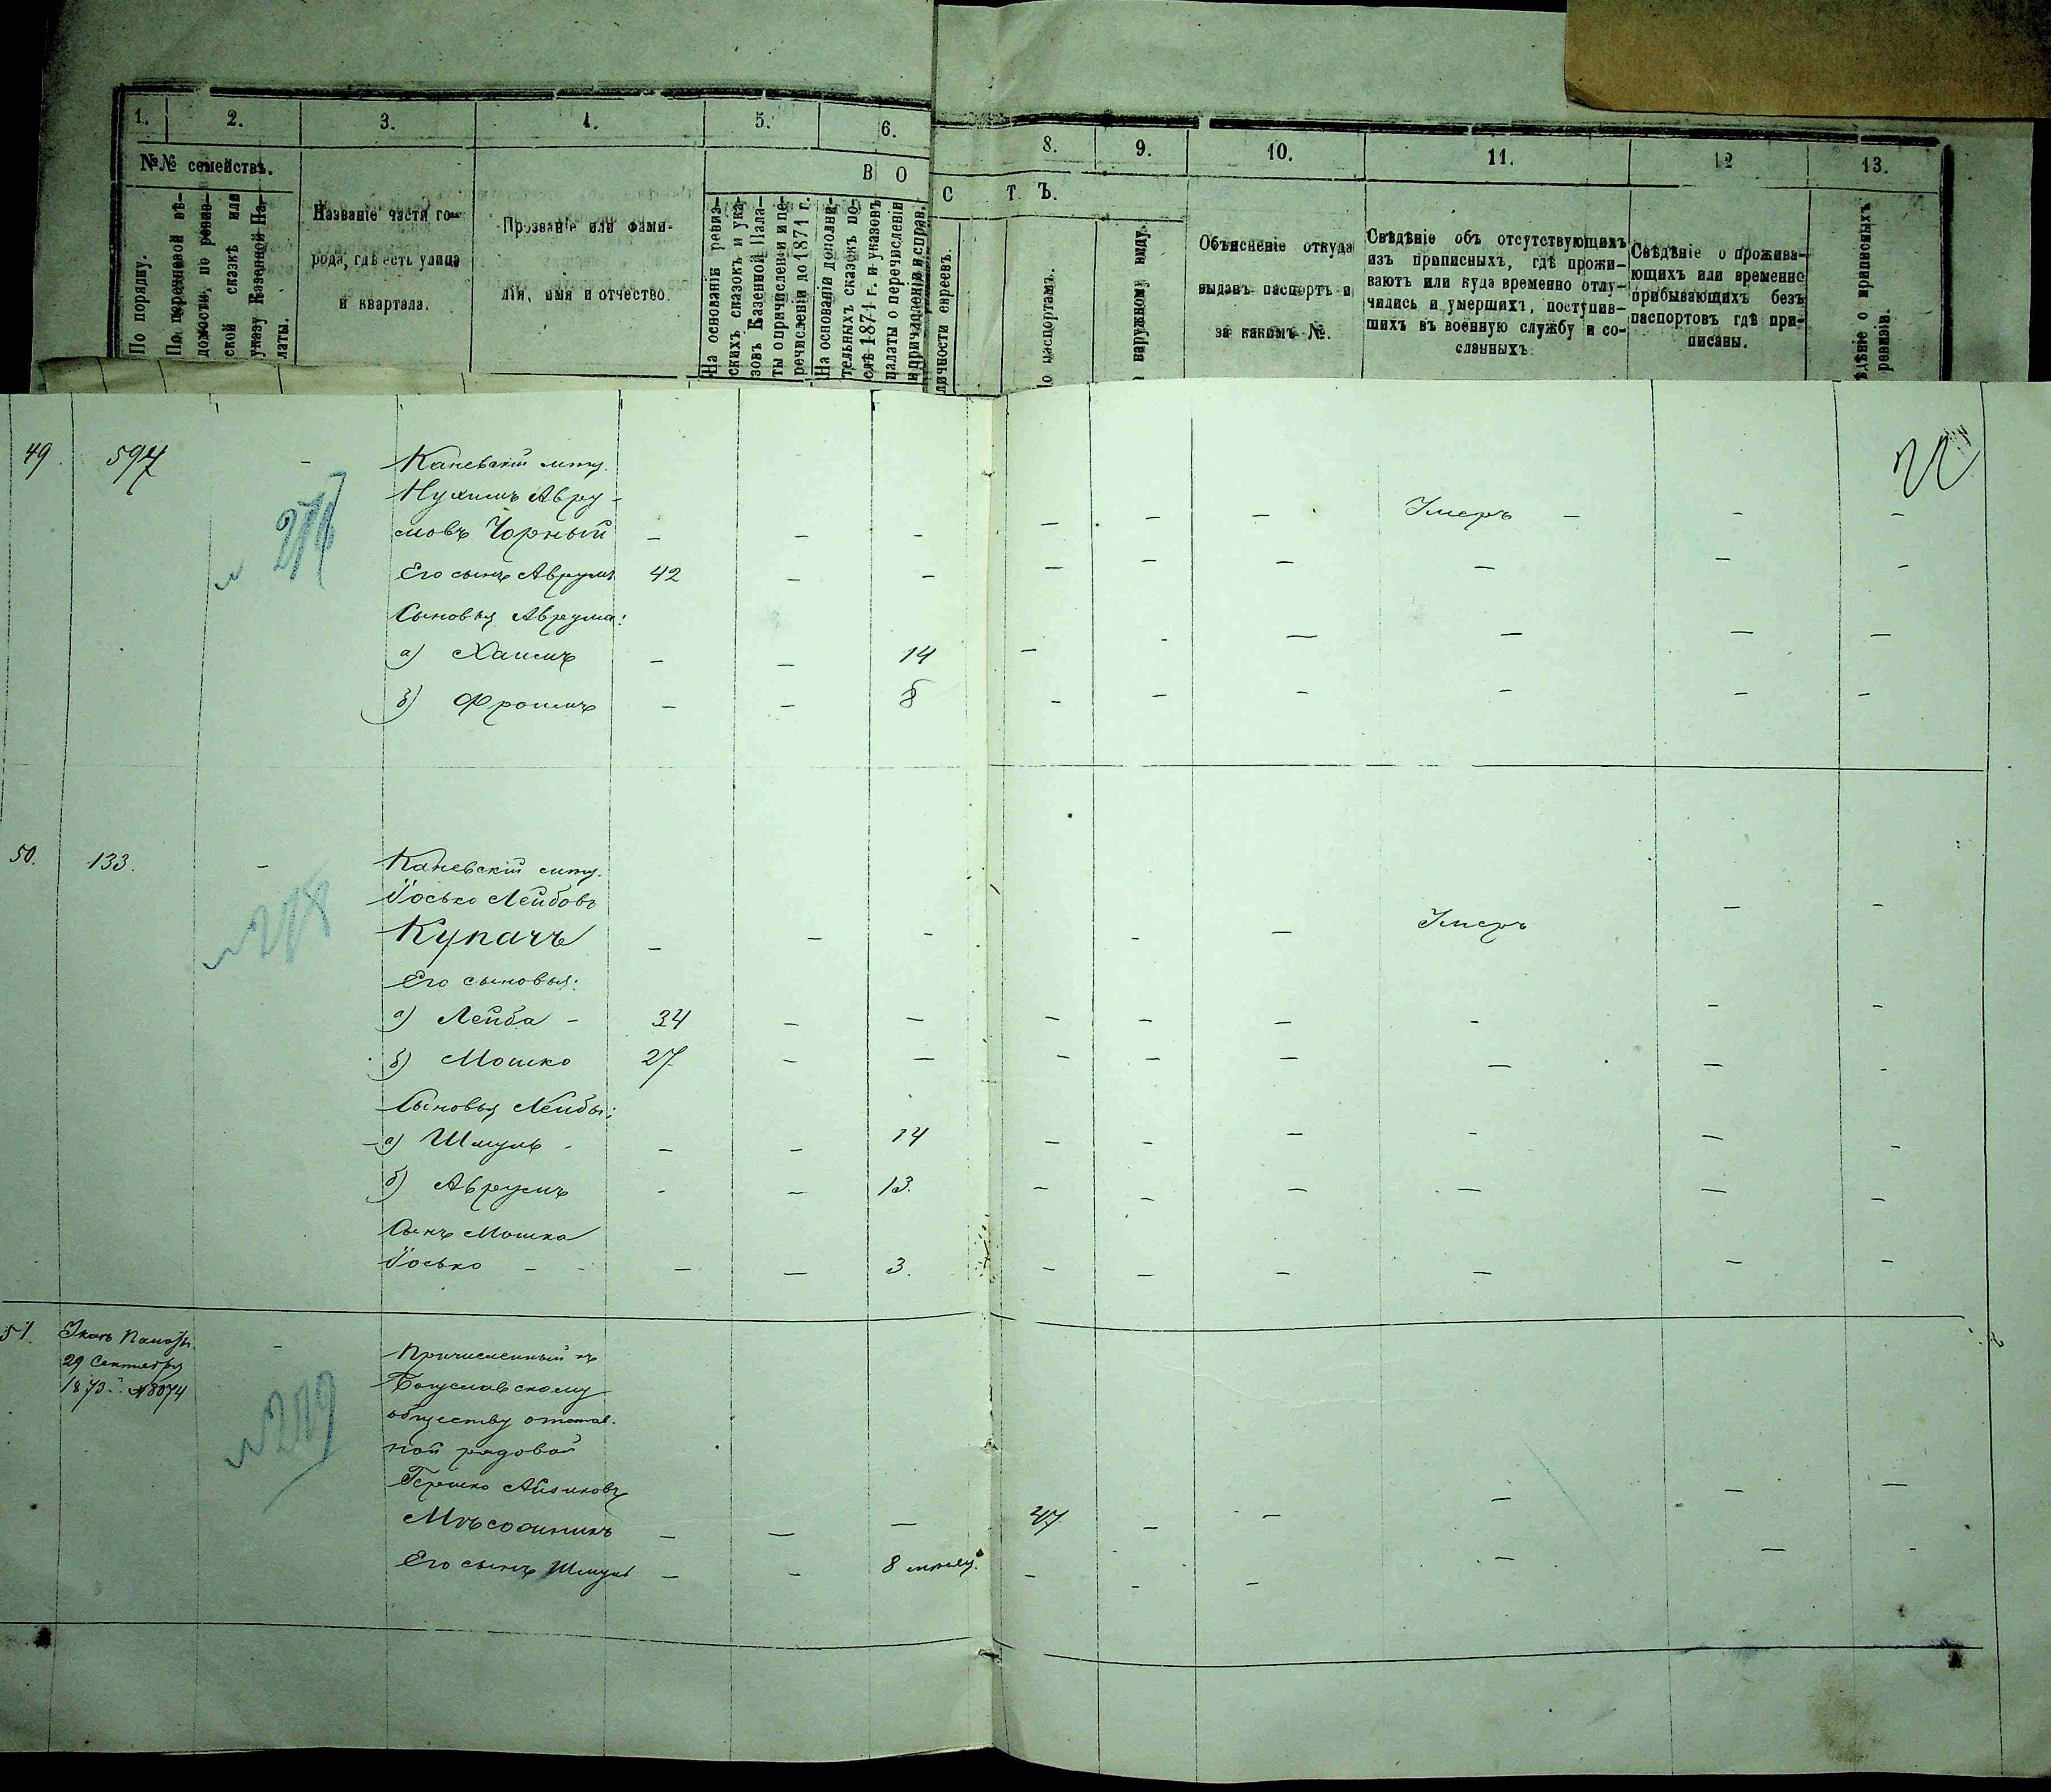 1. 2. 3. 4. 5. 6. 8. 9. 10. 11. 12 13.
№№ семействъ.
По порядку.
По перечневой вѣ-
домости, по ревиз-
ской сказкѣ или
указу Казенной Па-
латы.
Названіе части го-
рода, гдѣ есть улица
и квартала.
Прозваніе или фами-
лія, имя и отчество.
В О
С Т Ъ.
На основаніи ревиз-
скихъ сказокъ и ука-
зовъ Казенной Пала-
ты о причисленіи и пе-
речисленіи до 1871 г.
На основаніи дополни-
тельныхъ сказокъ по-
слѣ 1871 г. и указовъ
палаты о перечисленіи
и причисленіи и справ.
личности евреевъ.
о паспортамъ.
наружному виду.
Объясненіе откуда
выданъ паспортъ и
за какимъ №.
Свѣдѣніе объ отсутствующихъ
изъ приписныхъ, гдѣ прожи-
ваютъ или куда временно отлу-
чились и умершихъ, поступив-
шихъ въ военную службу и со-
сланныхъ
Свѣдѣніе о прожива-
ющихъ или временно
прибывающихъ безъ
паспортовъ гдѣ при-
писаны.
ѣдѣніе о приписныхъ
ревизіи.
49. 597 — Каневскій
Нухимъ Авру-
мовъ Чорный — — — — — — Умеръ — — —
Его сынъ Аврумъ 42 — — — — — — — —
Сыновья Аврума:
а) Хаимъ — — 14 — - — — — —
б) Фроимъ — — 8 - — - — — —
50. 133. — Каневскій
Іосько Лейбовъ
Купачъ — — - - — Умеръ — -
№278
Его сыновья:
а) Лейба - 34 — — — — — - — -
б) Мошко 27 — — — — — — — -
Сыновья Лейбы:
а) Шмуль - — — 14 — — — - — -
б) Аврумъ - — 13. — — — — — -
Сынъ Мошка
Іосько - - — — 3. — — — — — —
51. Указъ Палаты
29 Сентября
1873 г. №8074
№279
Причисленный къ
Богуславскому
обществу отстав-
ной рядовой
Гершко Айзиковъ
— — — 47 — — — — —
Его сынъ Шмуль — - 8 — - - — — -